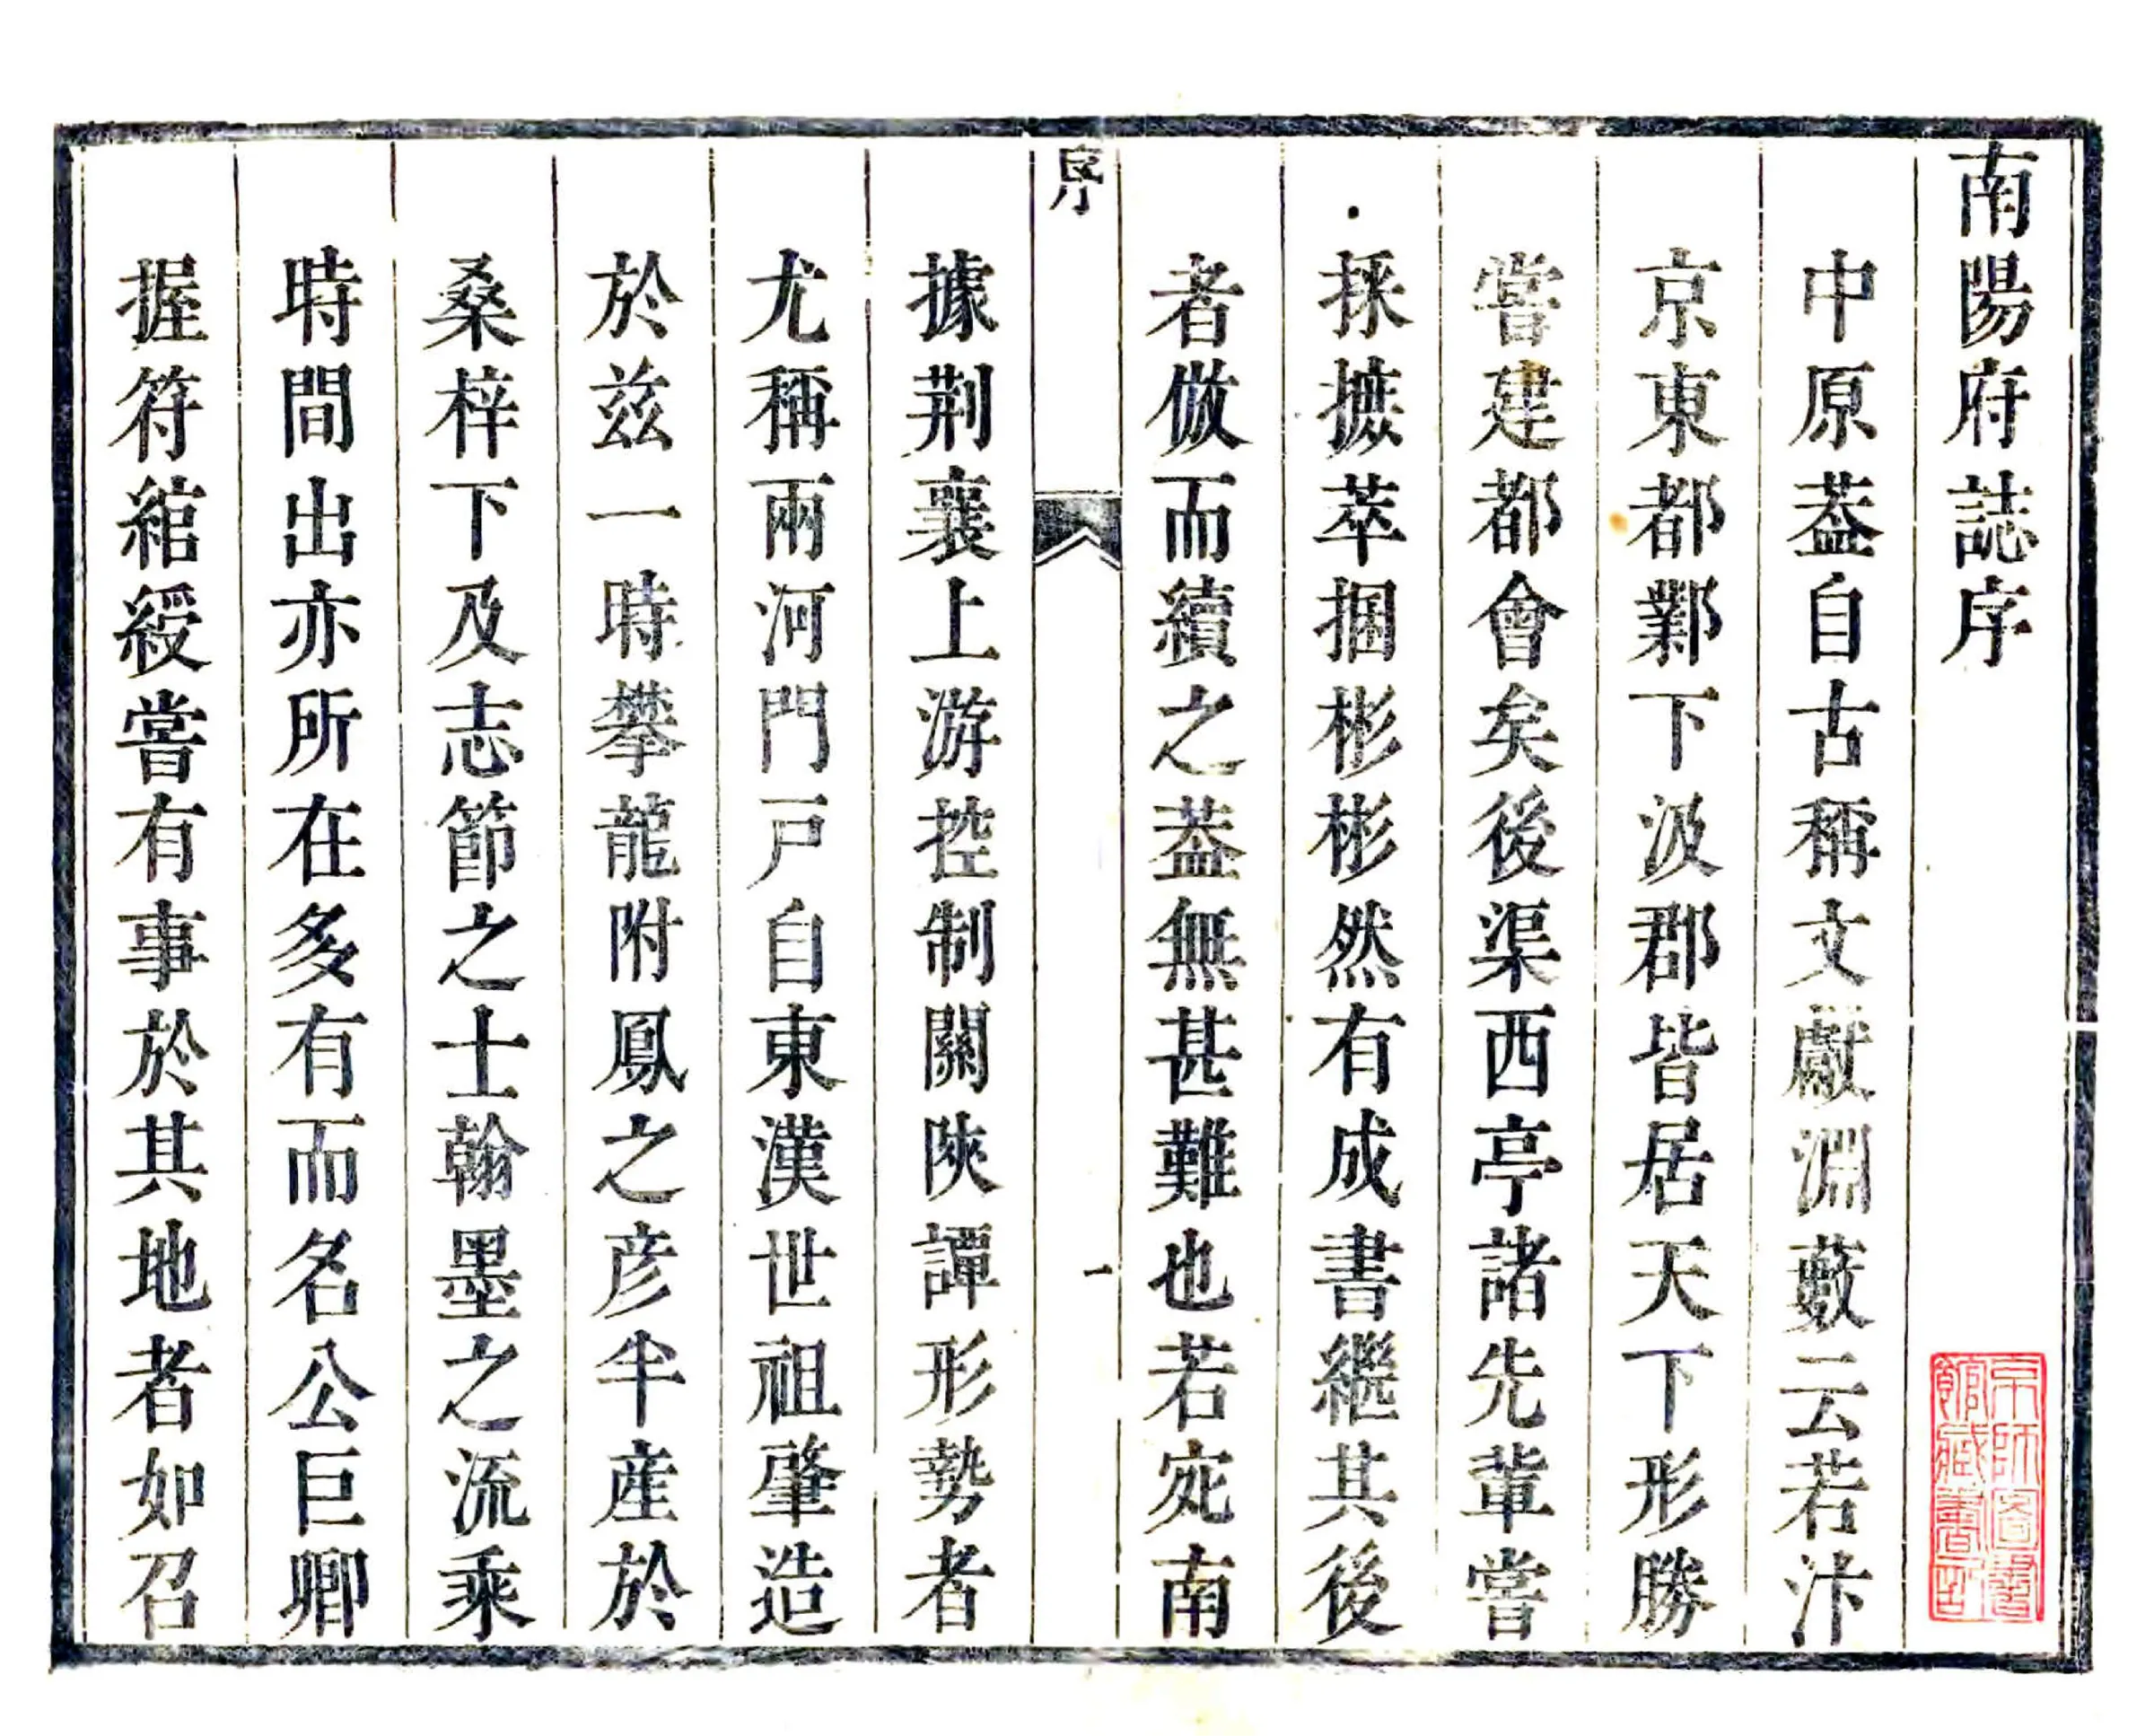 南陽府誌序
中原葢自古稱文獻淵藪云若汴
京東都鄴下汲郡皆居天下形勝
嘗建都會矣後渠西亭諸先輩嘗
採摭萃捆彬彬然有成書繼其後
者倣而續之葢無甚難也若宛南
序
一
據荆襄上游控制關陝譚形勢者
尤稱兩河門戸自東漢世祖肇造
於兹一時攀龍附鳳之彦半産於
桑梓下及志節之士翰墨之流乘
時間出亦所在多有而名公巨卿
握符綰綬嘗有事於其地者如召
京師圖書
館藏書記